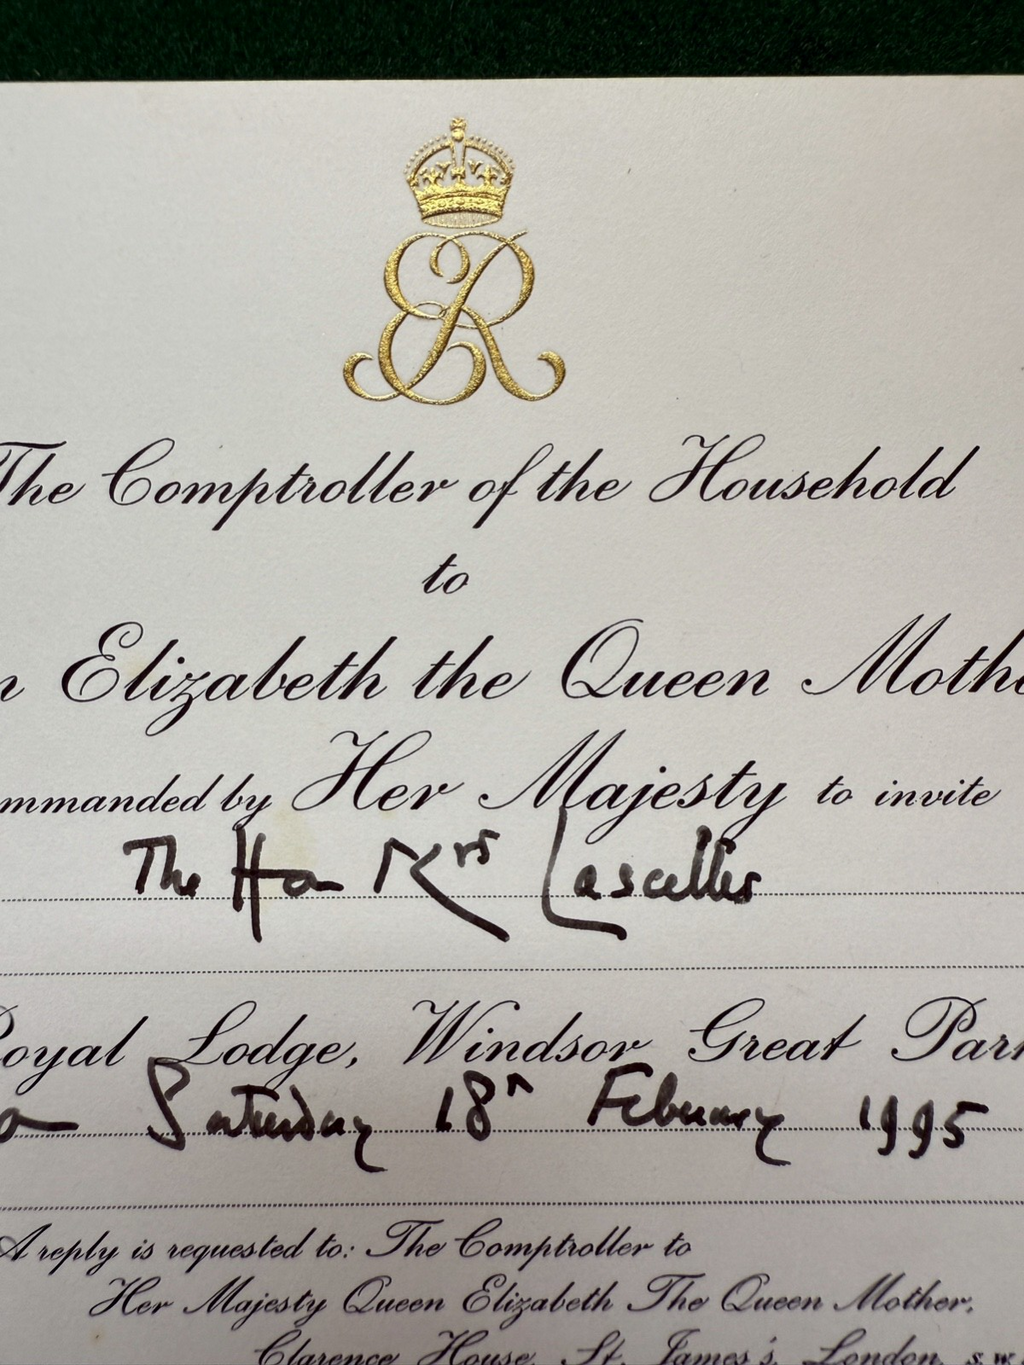 ER
The Comptroller of the Household
to
Elizabeth the Queen Mothe
mmanded by Her Majesty to invite
The Hon Mrs Lascelles
Royal Lodge, Windsor Great Park
on Saturday 18th February 1995
A reply is requested to: The Comptroller to
Her Majesty Queen Elizabeth The Queen Mother,
Clarence House, St. James's, London, S.W.